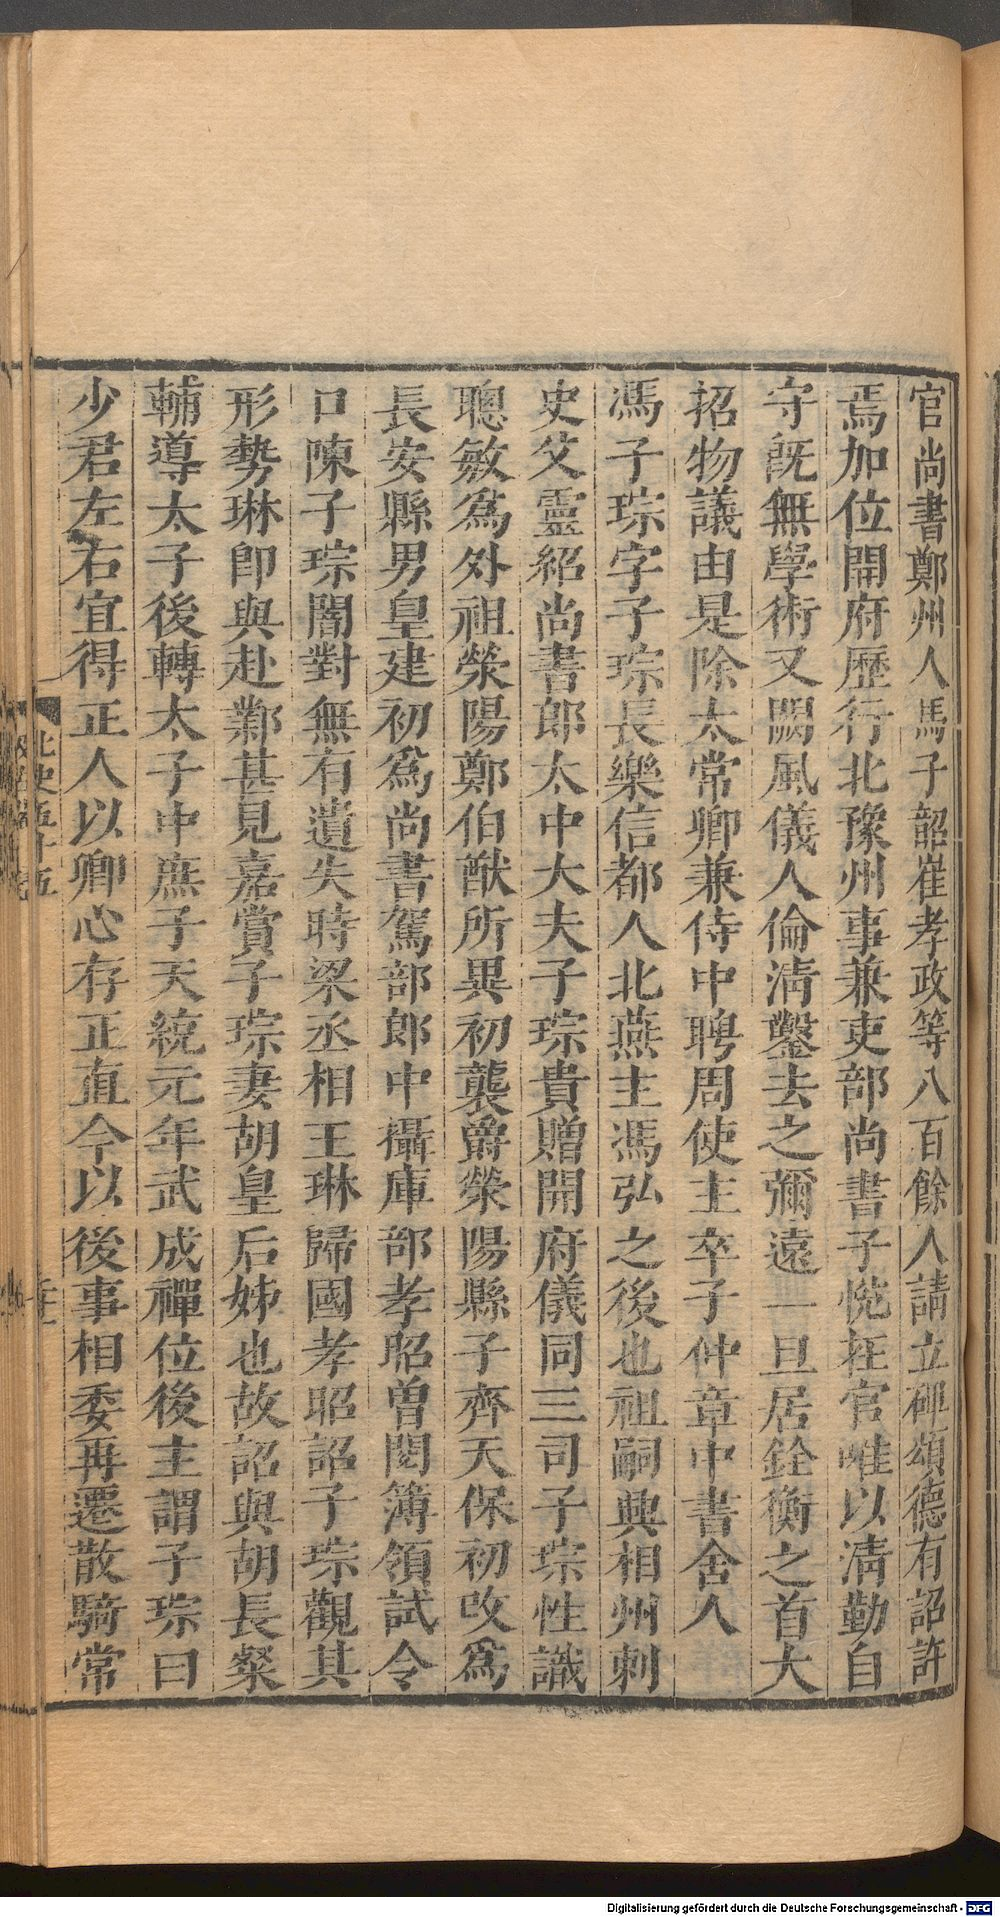 官尚書鄭州人馬子韶崔孝政等八百餘人請立碑頌德有詔許
焉加位開府歷行北豫州事兼吏部尚書子悅在官唯以清勤自
守既無學術又闕風儀人倫清鑿去之彌遠一旦居銓衡之首大
招物議由是除太常卿兼侍中聘周使主卒子仲章中書舍人
馮子琮字子琮長樂信都人北燕主馮弘之後也祖嗣興相州刺
史父靈紹尚書郎太中大夫子琮貴贈開府儀同三司子琮性識
聰敏爲外祖滎陽鄭伯猷所異初襲爵滎陽縣子齊天保初改爲
長安縣男皇建初爲尚書駕部郎中攝庫部孝昭曾閱簿領試令
口陳子琮闇對無有遺失時梁丞相王琳歸國孝昭詔子琮觀其
形勢琳即與赴鄴甚見嘉賞子琮妻胡皇后姊也故詔與胡長粲
輔導太子後轉太子中庶子天統元年武成禪位後主謂子琮曰
少君左右宜得正人以卿心存正直今以後事相委再遷散騎常
北史五十五
Digitalisierung gefördert durch die Deutsche Forschungsgemeinschaft - DFG